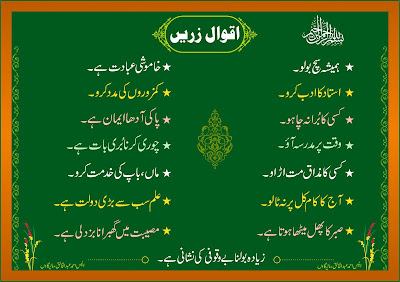 بسم اللہ الرحمن الرحیم
اقوال زریں
★ ہمیشہ سچ بولو۔
★ خاموشی عبادت ہے۔
★ استاد کا ادب کرو۔
★ کمزوروں کی مدد کرو۔
★ کسی کا برا نہ چاہو۔
★ پاکی آدھا ایمان ہے۔
★ وقت پر مدرسہ آؤ۔
★ چوری کرنا بُری بات ہے۔
★ کسی کا مذاق مت اڑاو۔
★ ماں، باپ کی خدمت کرو۔
★ آج کا کام کل پر نہ ٹالو۔
★ علم سب سے بڑی دولت ہے۔
★ صبر کا پھل میٹھا ہوتا ہے۔
★ مصیبت میں گھبرانا بزدلی ہے۔
زیادہ بولنا بے وقوفی کی نشانی ہے۔